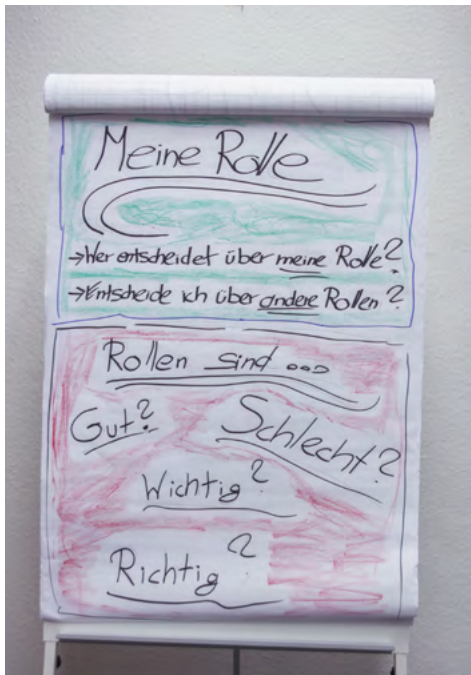 Meine Rolle
→Wer entscheidet über meine Rolle?
→Entscheide ich über andere Rollen?
Rollen sind ...
Gut? Schlecht?
Wichtig?
Richtig?